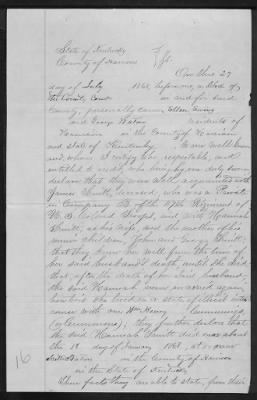 State of Kentucky
County of Harrison } Ss.
On this 27
day of July 186 , before me, a Clerk of
the County Court in and for said
County, personally came Ellen Ewing
and George Eaton residents of
in the County of Harrison
and State of Kentucky, to me well known
and whom I certify are respectable, and
entitled to credit, who being by me duly sworn
declare that they were acquainted with
James Smith, deceased, who was a Private
in Company B. of the 117th Regiment of
U.S. Colored Troops, and with Hannah
Smith, as his wife, and the mother of his
minor children, John and George Smith;
that they knew her well from the time of
her said husband's death, until she died
that after the death of her said husband,
the said Hannah never married again,
but she lived in a state of illicit inter-
course with one Wm Henry Cummings,
(or Clemmons); they further declare that
the said Hannah Smith died on or about
the 1st day of January 186 , at or near
in the County of Harrison
in the State of Kentucky
These facts they are able to state, from their
16